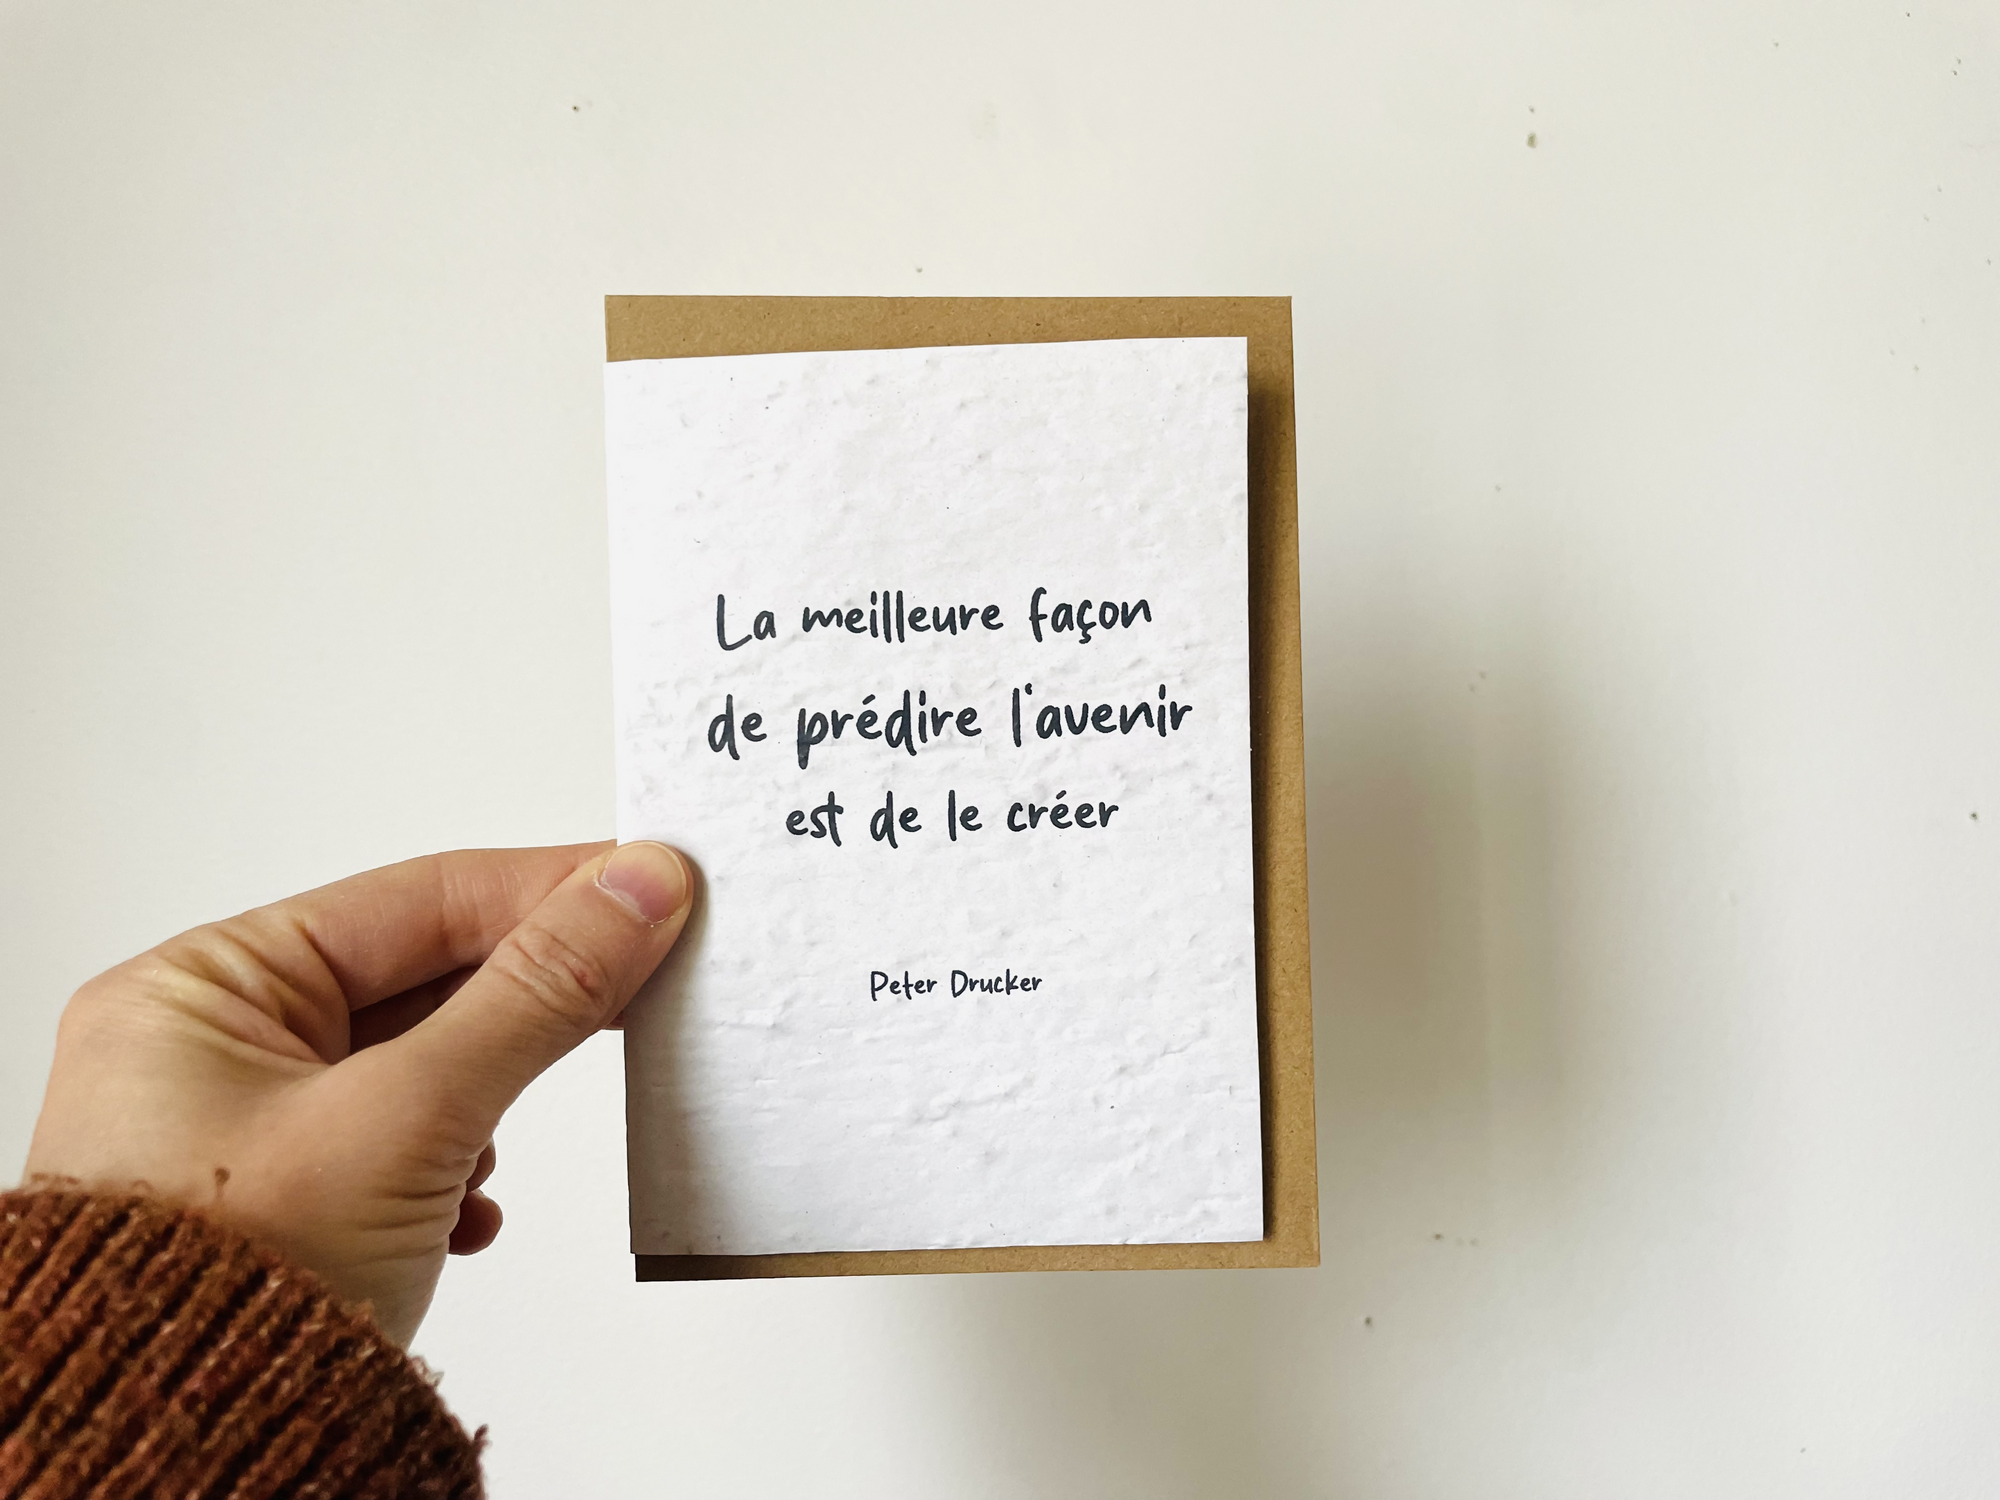 La meilleure façon
de prédire l'avenir
est de le créer
Peter Drucker